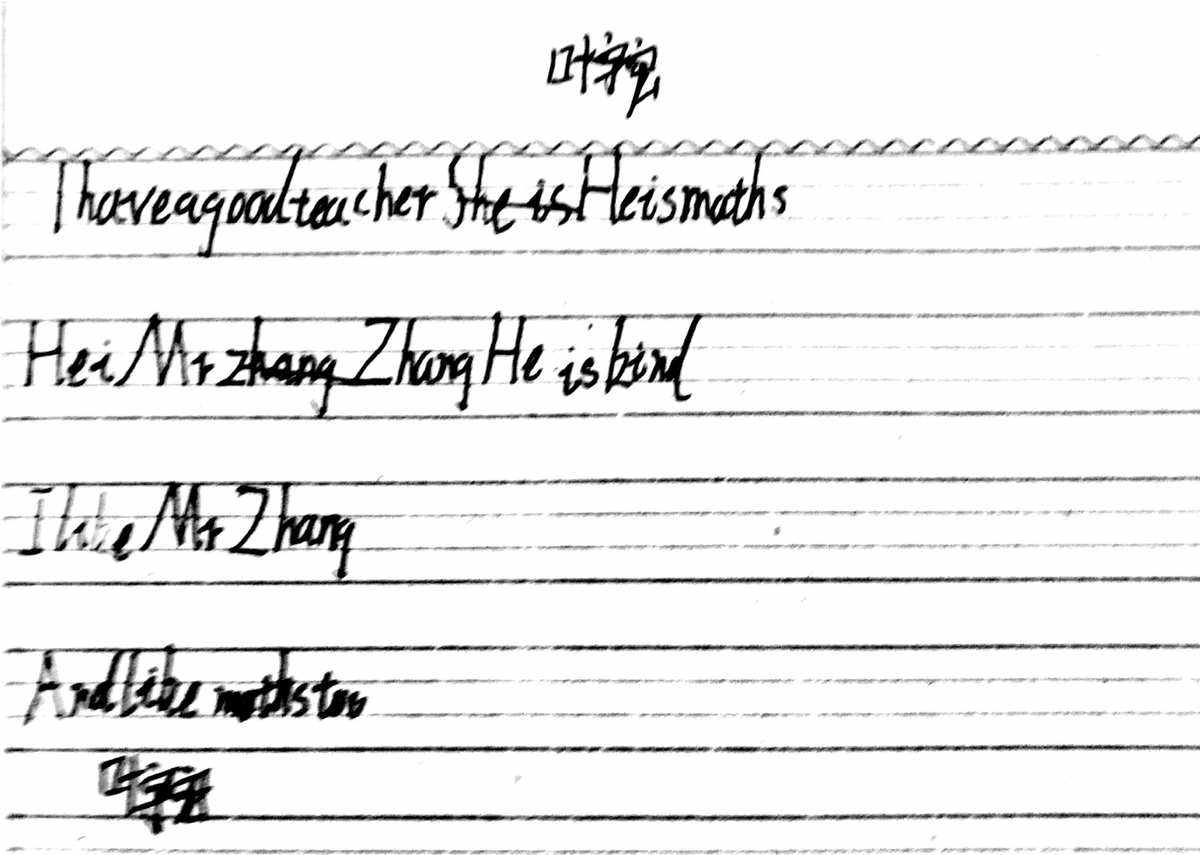 I have a good teacher He is maths
Hei Mr Zhang He is bind
I like Mr Zhang
And like maths too